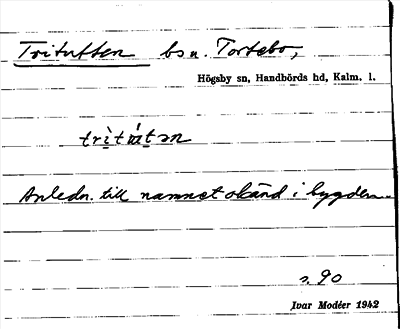 Tritutten bsn. Tortebo,
Högsby sn, Handbörds hd, Kalm. l.
Anledn. till namnet okänd i bygden.
s. 90
Ivar Modéer 1942